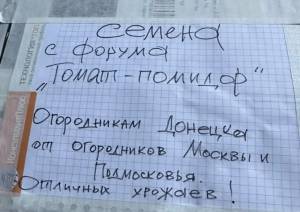 семена
с форума
„Томат-помидор"
Огородникам Донецка
от огородников Москвы и
Подмосковья.
Отличных урожаев!